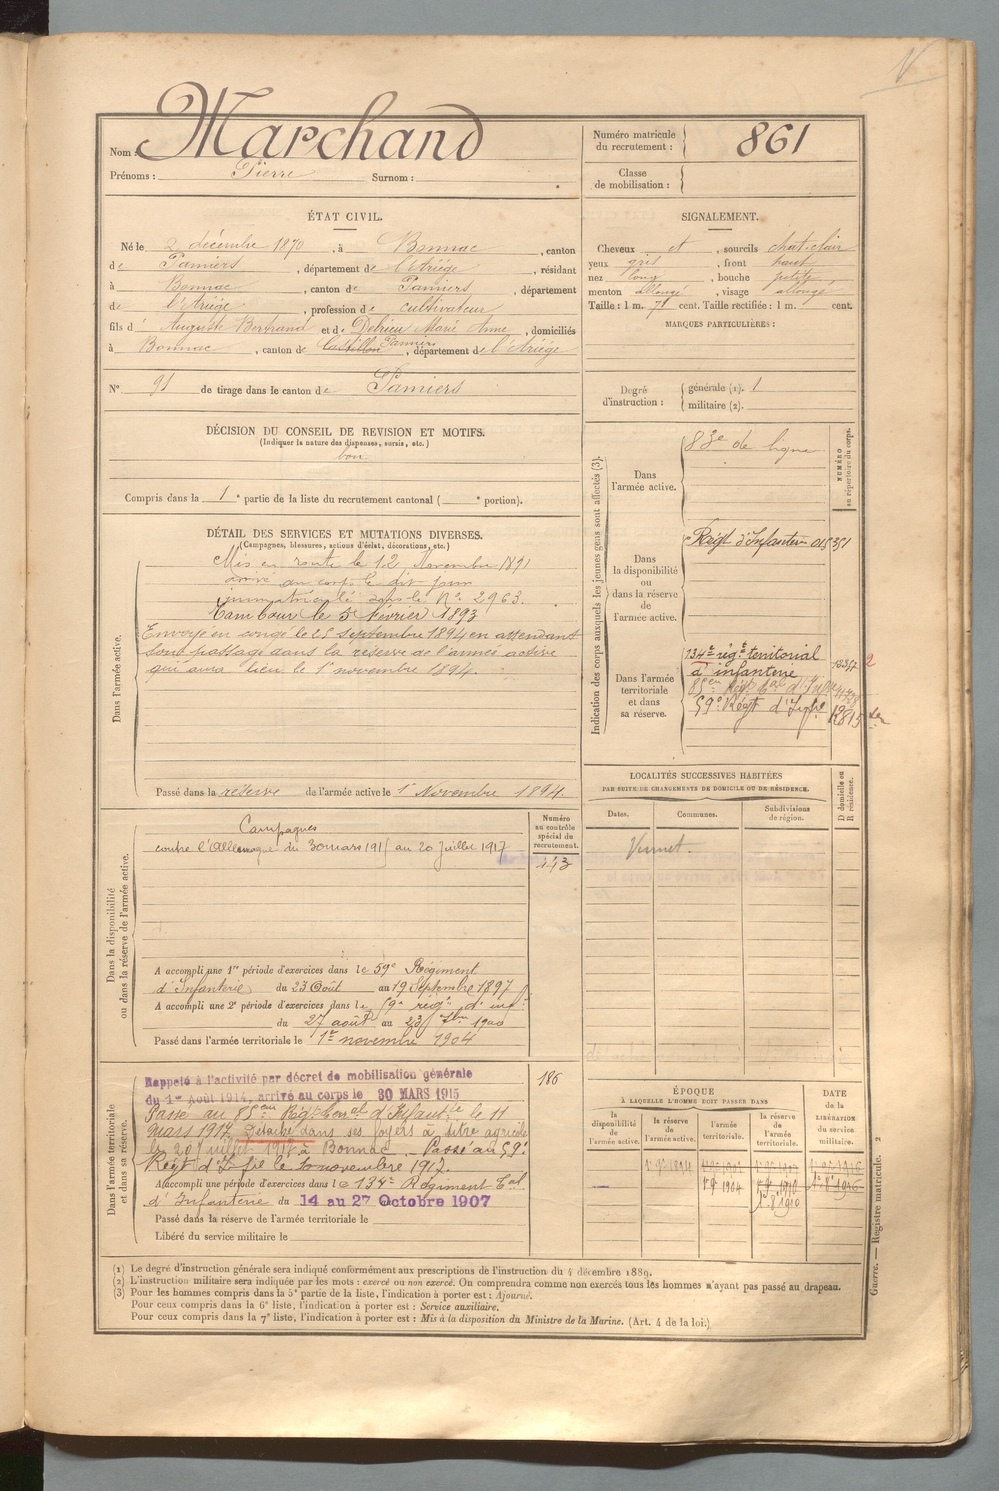 Nom : Marchand
Prénoms : Pierre Surnom :
Numéro matricule du recrutement : 861
Classe de mobilisation :
ÉTAT CIVIL.
Né le 2 décembre 1870, à Bonnac, canton
de Pamiers, département de l'Ariège, résidant
à Bonnac, canton de Pamiers, département
de l'Ariège, profession de cultivateur
fils d' Auguste Bertrand et de Debrieu Marie Anne, domiciliés
à Bonnac, canton de Castillon Pamiers, département de l'Ariège
N° 91 de tirage dans le canton de Pamiers
SIGNALEMENT.
Cheveux et, sourcils chat. clair
yeux gris, front haut
nez long, bouche petite
menton allongé, visage allongé
Taille : 1 m. 71 cent. Taille rectifiée : 1 m. cent.
MARQUES PARTICULIÈRES :
Degré d'instruction : générale (1). 1
militaire (2).
DÉCISION DU CONSEIL DE REVISION ET MOTIFS.
(Indiquer la nature des dispenses, sursis, etc.)
bon
Compris dans la 1e partie de la liste du recrutement cantonal ( e portion).
DÉTAIL DES SERVICES ET MUTATIONS DIVERSES.
(Campagnes, blessures, actions d'éclat, décorations, etc.)
Dans l'armée active.
Mis en route le 12 Novembre 1891
arrivé au corps le dit jour
immatriculé sous le N° 2963.
Tambour le 5 février 1893
Envoyé en congé le 25 septembre 1894 en attendant
son passage dans la réserve de l'armée active
qui aura lieu le 1er novembre 1894.
Passé dans la réserve de l'armée active le 1er Novembre 1894.
Indication des corps auxquels les jeunes gens sont affectés (3).
NUMÉRO au répertoire du corps.
Dans l'armée active.
83e de ligne
Dans la disponibilité ou dans la réserve de l'armée active.
Régt d'Infanterie
Dans l'armée territoriale et dans sa réserve.
134e régt territorial
d'infanterie
85e Régt
59e Régt d'Infie
LOCALITÉS SUCCESSIVES HABITÉES
PAR SUITE DE CHANGEMENTS DE DOMICILE OU DE RÉSIDENCE.
Dates. Communes. Subdivisions de région. D domicile ou R résidence.
Vernet.
Dans la disponibilité ou dans la réserve de l'armée active.
Numéro au contrôle spécial du recrutement.
143
Campagnes
contre l'Allemagne du 30 mars 1915 au 20 Juillet 1917
A accompli une 1re période d'exercices dans le 59e Régiment
d'Infanterie du 23 Août au 19 Septembre 1897
A accompli une 2e période d'exercices dans le 59e régt d'inf
du 27 août au 23 7bre 1900
Passé dans l'armée territoriale le 1er novembre 1904
Dans l'armée territoriale et dans sa réserve.
186
Rappelé à l'activité par décret de mobilisation générale
du 1er Août 1914, arrivé au corps le 30 MARS 1915
Passé au 85eme Régt d'Infantie le 11
mars 1917. Détaché dans ses foyers à titre agricole
le 20 Juillet 1917 à Bonnac. Passé au 59e
Régt d'Infie le 10 novembre 1917.
A accompli une période d'exercices dans le 134e Régiment Tal
d'Infanterie du 14 au 27 Octobre 1907
Passé dans la réserve de l'armée territoriale le
Libéré du service militaire le
ÉPOQUE
À LAQUELLE L'HOMME DOIT PASSER DANS
la disponibilité de l'armée active. la réserve de l'armée active. l'armée territoriale. la réserve de l'armée territoriale.
DATE de la LIBÉRATION du service militaire.
(1) Le degré d'instruction générale sera indiqué conformément aux prescriptions de l'instruction du 4 décembre 1889.
(2) L'instruction militaire sera indiquée par les mots : exercé ou non exercé. On comprendra comme non exercés tous les hommes n'ayant pas passé au drapeau.
(3) Pour les hommes compris dans la 5e partie de la liste, l'indication à porter est : Ajourné.
Pour ceux compris dans la 6e liste, l'indication à porter est : Service auxiliaire.
Pour ceux compris dans la 7e liste, l'indication à porter est : Mis à la disposition du Ministre de la Marine. (Art. 4 de la loi.)
Guerre. — Registre matricule. 2